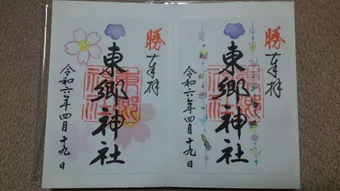 勝
奉拝
東郷神社
令和六年四月十九日
勝
奉拝
東郷神社
令和六年四月十九日